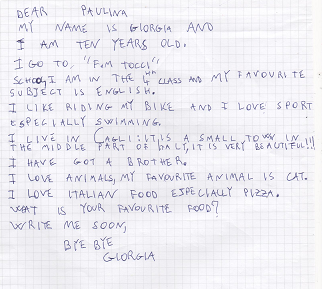 DEAR PAULINA
MY NAME IS GIORGIA AND
I AM TEN YEARS OLD.
I GO TO "F.M TOCCI"
SCHOOL, I AM IN THE 4TH CLASS AND MY FAVOURITE
SUBJECT IS ENGLISH.
I LIKE RIDING MY BIKE AND I LOVE SPORT
ESPECIALLY SWIMMING.
I LIVE IN CAGLI: IT IS A SMALL TOWN IN
THE MIDDLE PART OF ITALY, IT IS VERY BEAUTIFUL!!!
I HAVE GOT A BROTHER.
I LOVE ANIMALS, MY FAVOURITE ANIMAL IS CAT.
I LOVE ITALIAN FOOD ESPECIALLY PIZZA.
WHAT IS YOUR FAVOURITE FOOD?
WRITE ME SOON,
BYE BYE
GIORGIA